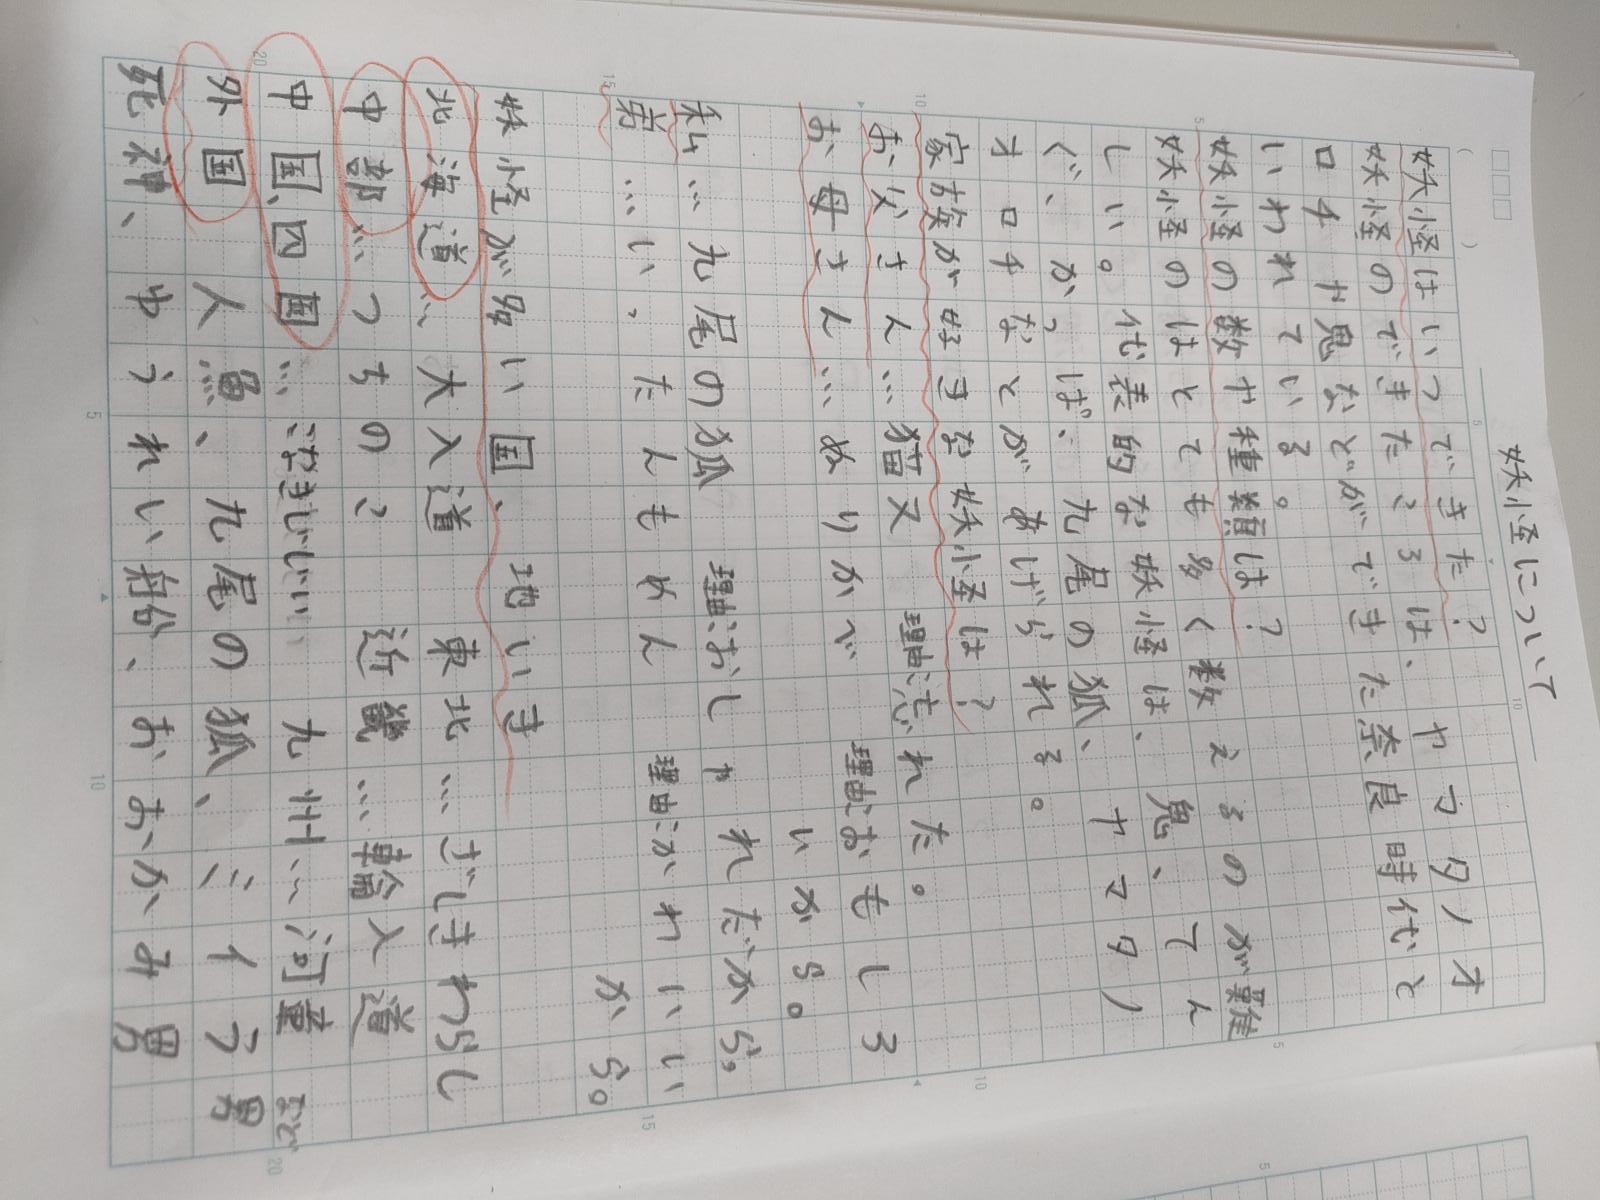 妖怪について
妖怪はいつできた?
妖怪のできたころは、ヤマタノオ
ロチや鬼などができた奈良時代と
いわれている。
妖怪の数や種類は?
妖怪のはとても多く数えるのが難
しい。代表的な妖怪は、鬼、てん
ぐ、かっぱ、九尾の狐、ヤマタノ
オロチなどがあげられる。
家族が好きな妖怪は?
お父さん…猫又 理由忘れた。
お母さん…ぬりかべ 理由おもしろ
いから。
私…九尾の狐 理由おしゃれだから。
弟…いったんもめん 理由かわいい
から。
妖怪が多い国、地いき
北海道…大入道 東北…ざしきわらし
中部…つちのこ 近畿…輪入道
中国、四国…こなきじじい 九州…河童など
外国…人魚、九尾の狐、ミイラ男
死神、ゆうれい船、おおかみ男